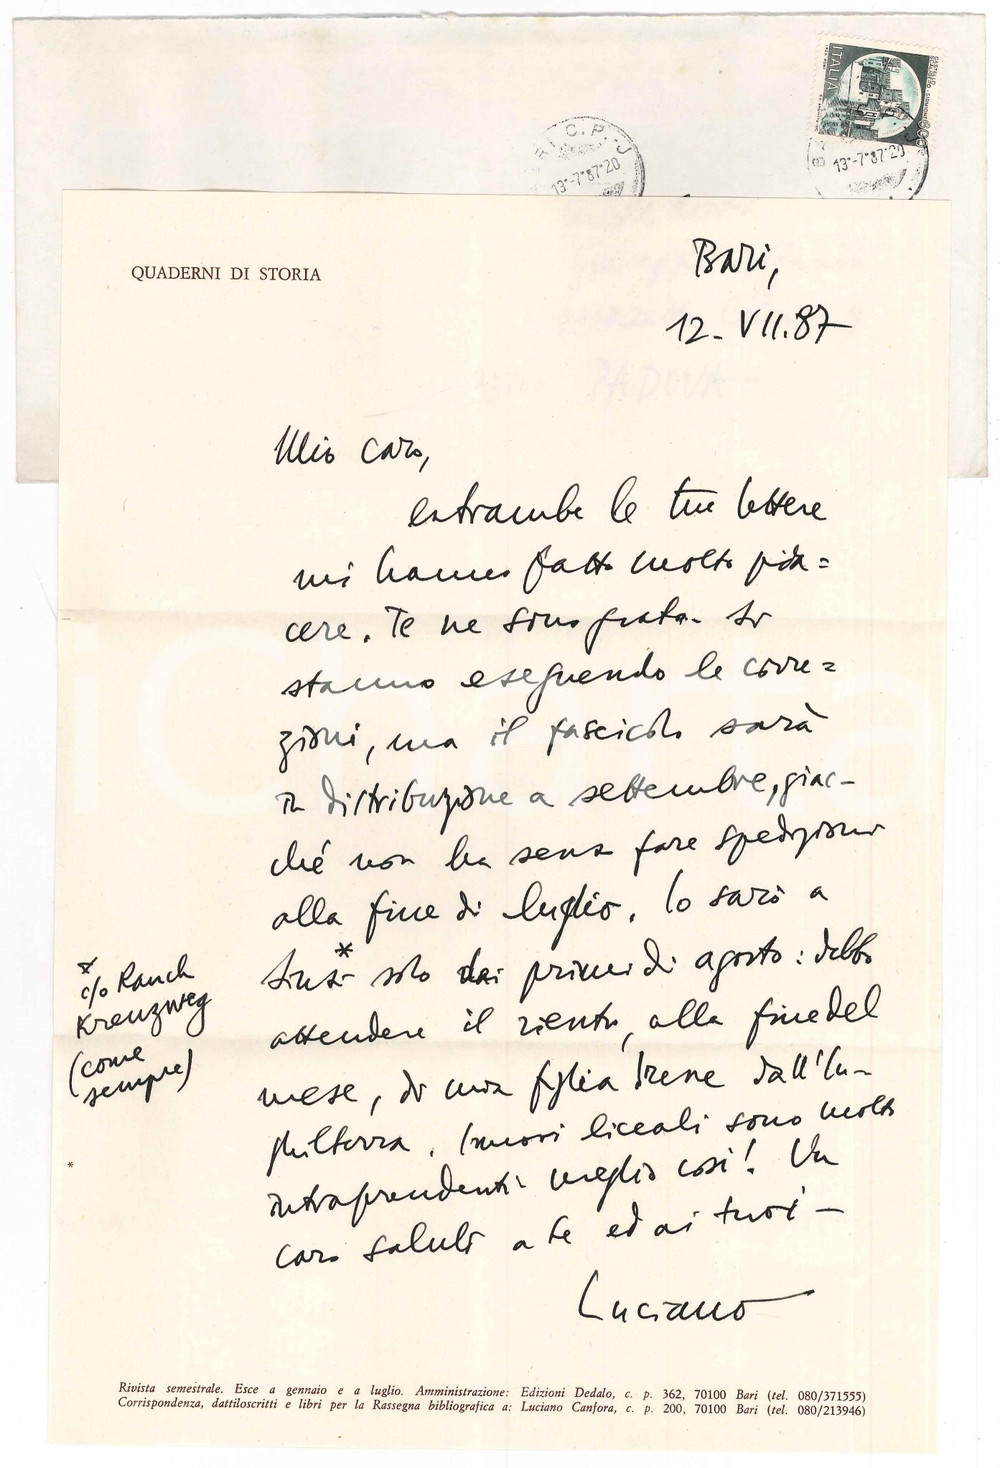 ITALIA
13-7-87-20
13-7-87-20
QUADERNI DI STORIA
Bari,
12. VII. 87
PADOVA
Mio caro,
entrambe le tue lettere
mi hanno fatto molto pia=
cere. Te ne sono grato. Si
stanno eseguendo le corre=
zioni, ma il fascicolo sarà
in distribuzione a settembre, giac-
ché non ha senso fare spedizioni
alla fine di luglio. Io sarò a
Siusi* solo dai primi di agosto: debbo
attendere il rientro, alla fine del
mese, di mia figlia Irene dall'In-
ghilterra. I nuovi liceali sono molto
intraprendenti: meglio così! Un
caro saluto a te ed ai tuoi -
Luciano
* c/o Ranch
Kreuzweg
(come
sempre)
*
Rivista semestrale. Esce a gennaio e a luglio. Amministrazione: Edizioni Dedalo, c. p. 362, 70100 Bari (tel. 080/371555)
Corrispondenza, dattiloscritti e libri per la Rassegna bibliografica a: Luciano Canfora, c. p. 200, 70100 Bari (tel. 080/213946)